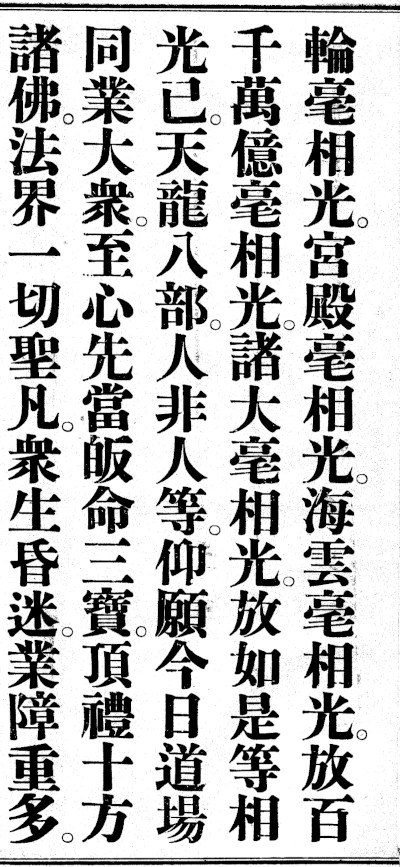 輪毫相光。宮殿毫相光。海雲毫相光。放百
千萬億毫相光。諸大毫相光。放如是等相
光已。天龍八部。人非人等。仰願今日道場
同業大衆。至心先當皈命三寶。頂禮十方
諸佛。法界一切聖凡。衆生昏迷。業障重多。